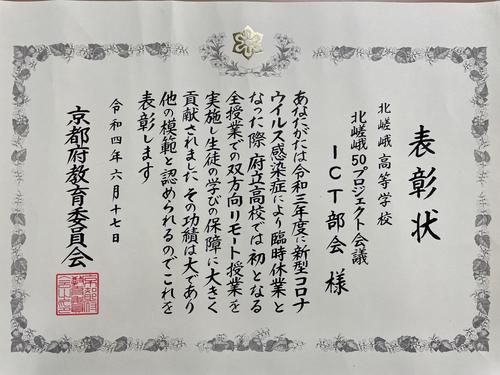 表彰状
北嵯峨高等学校
北嵯峨50プロジェクト会議
ICT部会 様
あなたがたは令和三年度に新型コロナ
ウイルス感染症により臨時休業と
なった際 府立高校では初となる
全授業での双方向リモート授業を
実施し生徒の学びの保障に大きく
貢献されました その功績は大であり
他の模範と認められるのでこれを
表彰します
令和四年六月十七日
京都府教育委員会